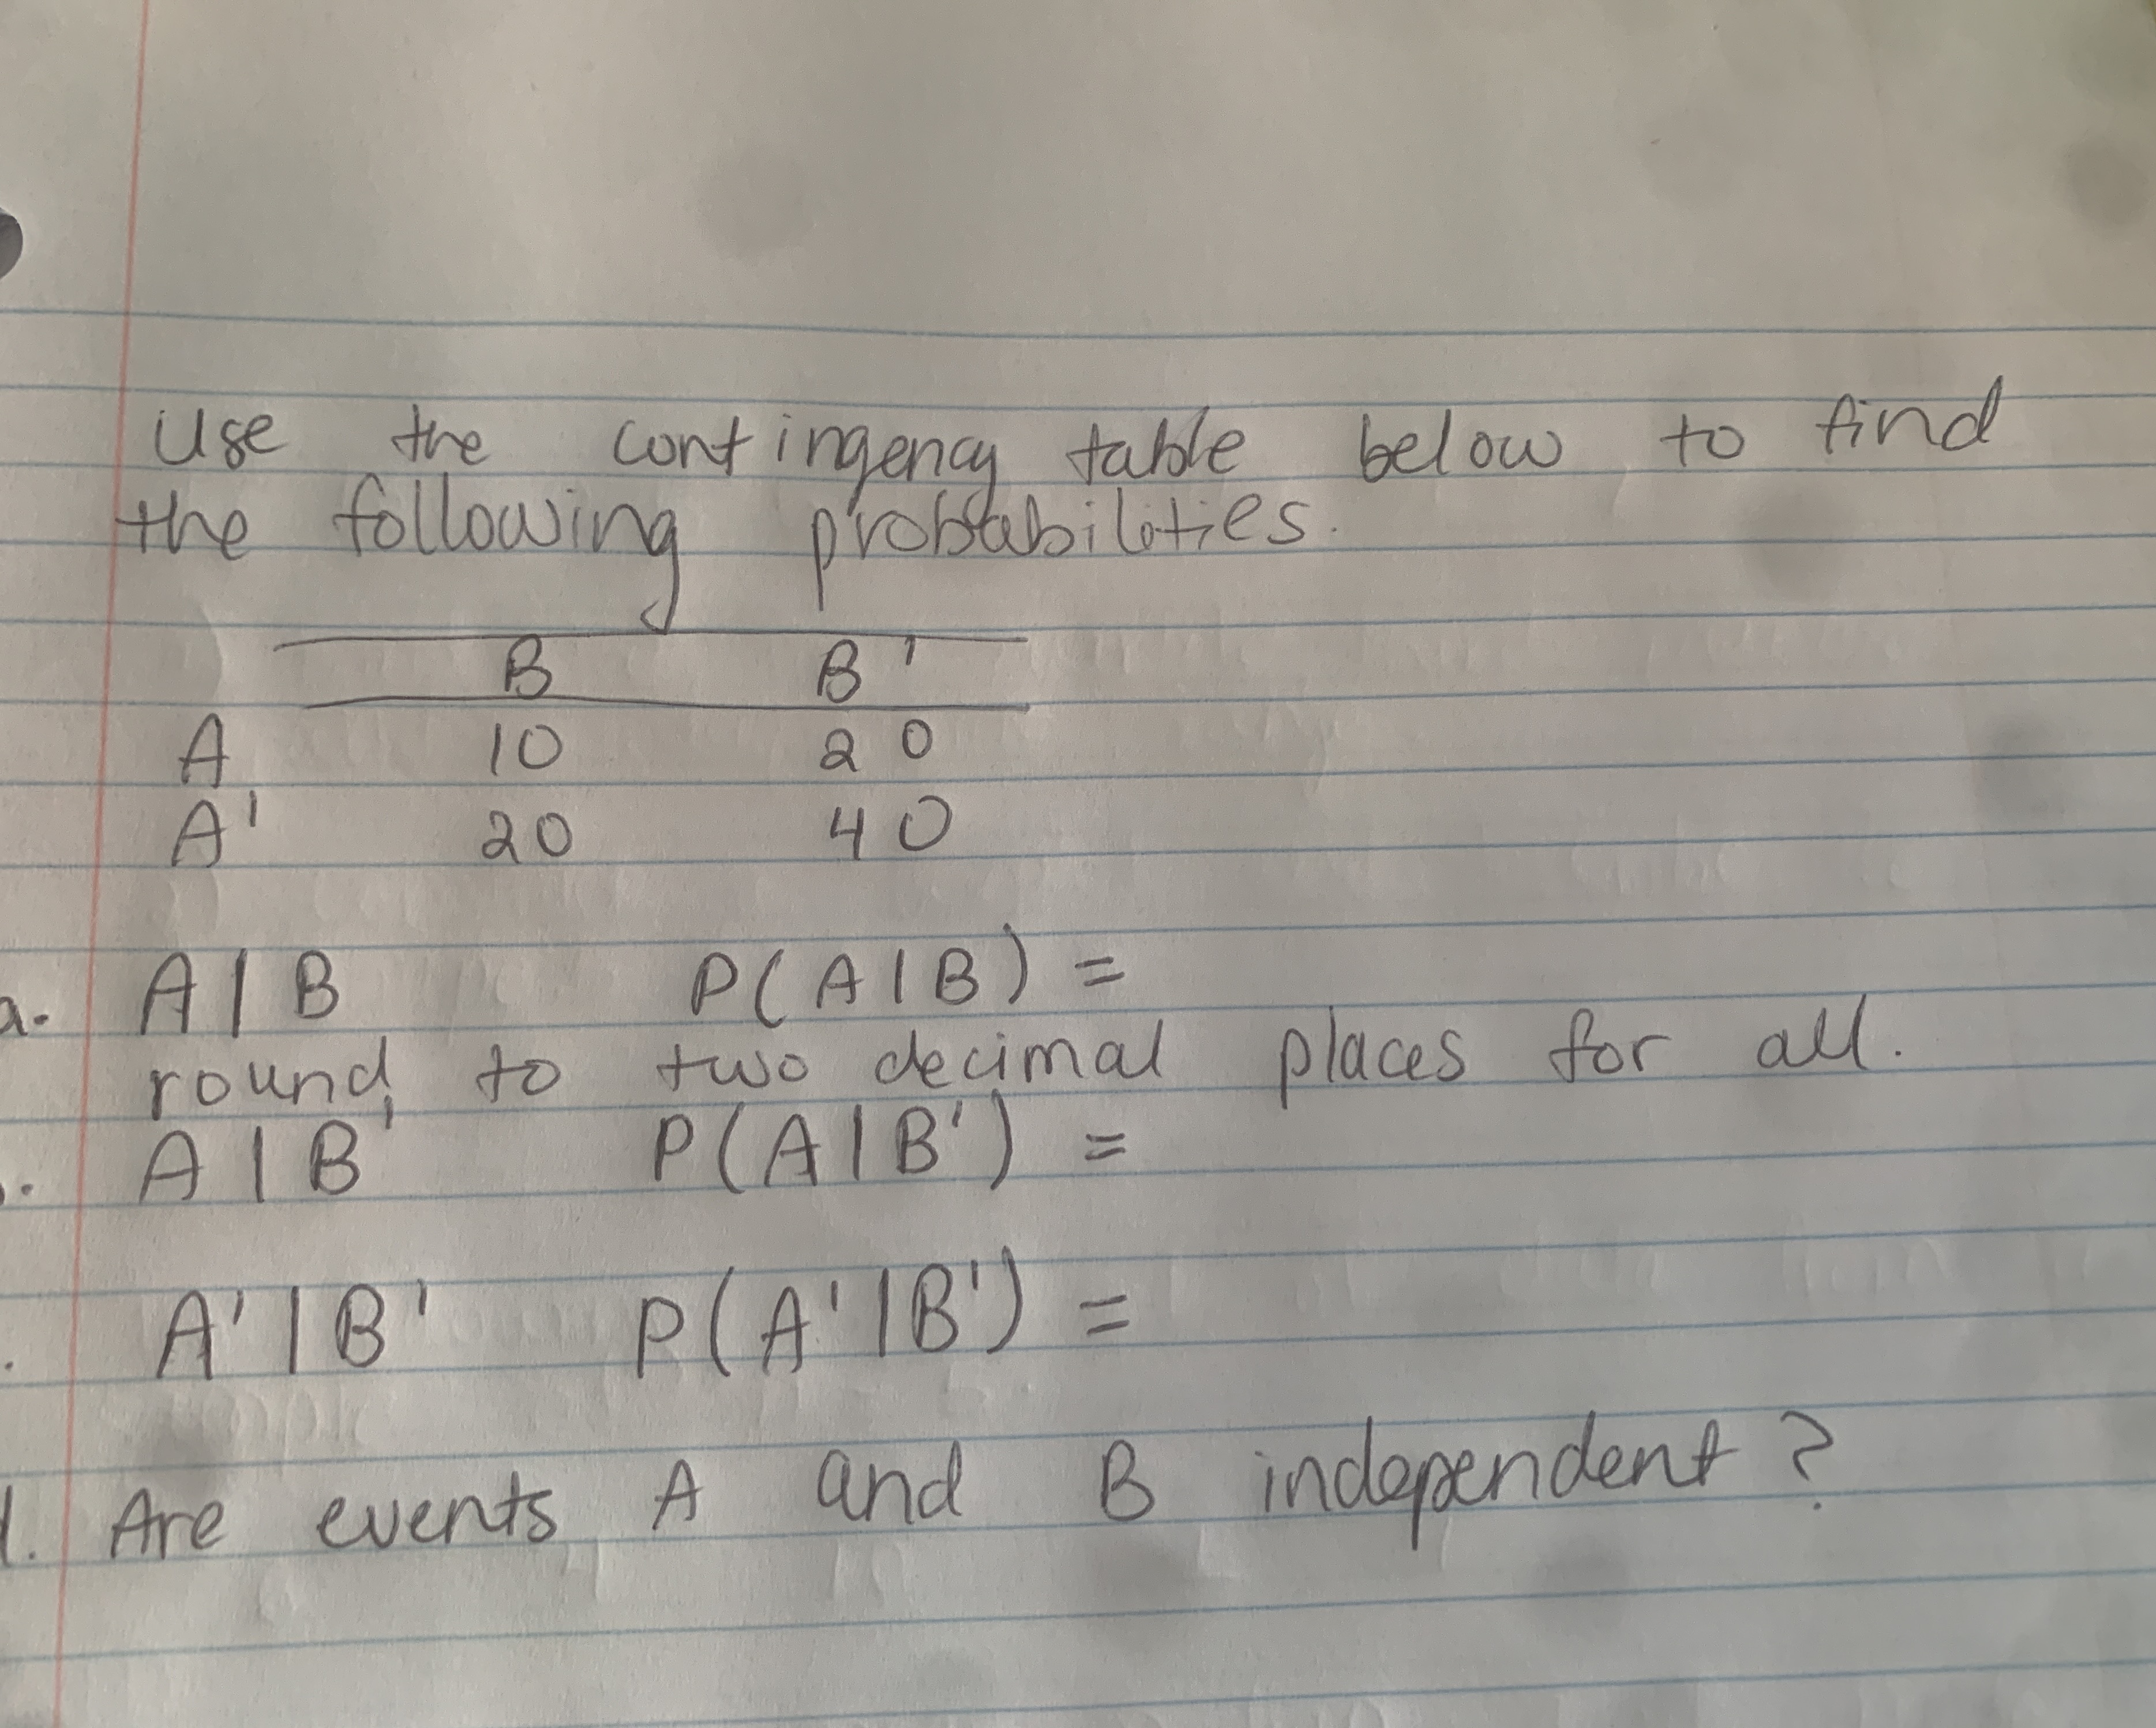 Use the contingency table below to find
the following probabilities.
B B'
A 10 20
A' 20 40
a. A | B P(A | B) =
round to two decimal places for all.
A | B' P(A | B') =
A' | B' P(A' | B') =
Are events A and B independent?